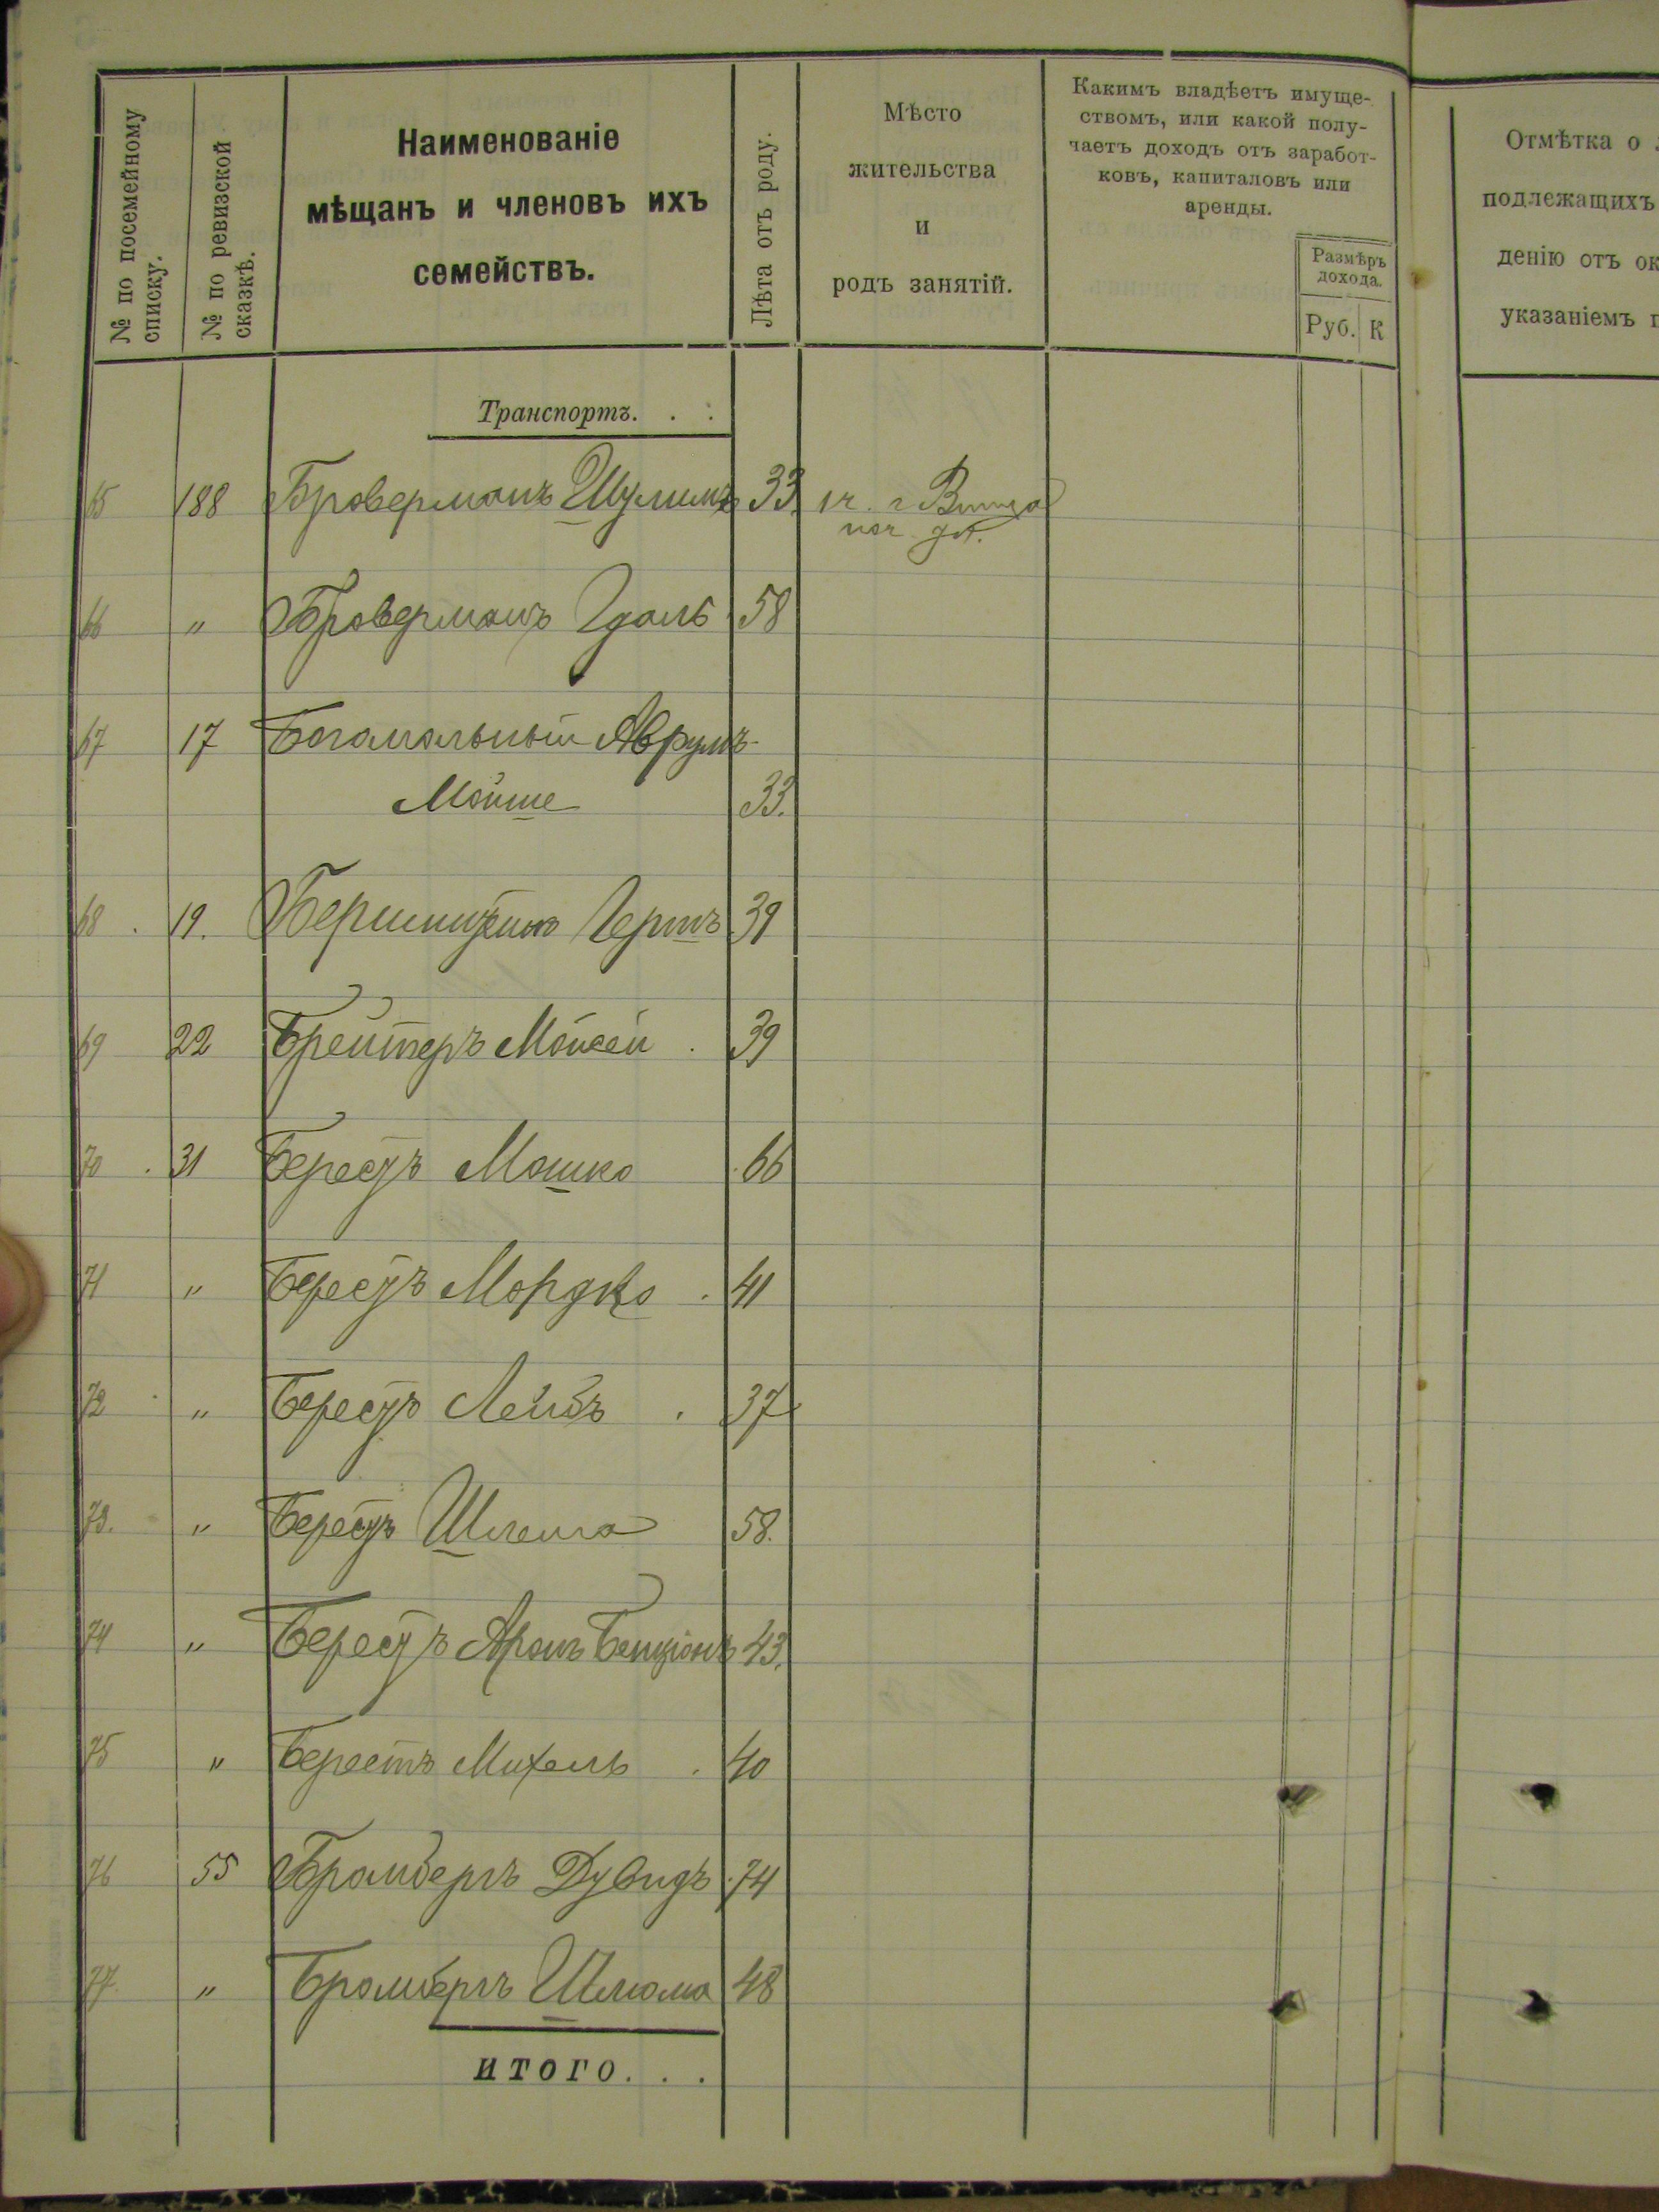 № по посемейному
списку.
№ по ревизской
сказкѣ.
Наименованіе
мѣщанъ и членовъ ихъ
семействъ.
Лѣта отъ роду.
Мѣсто
жительства
и
родъ занятій.
Какимъ владѣетъ имуще-
ствомъ, или какой полу-
чаетъ доходъ отъ заработ-
ковъ, капиталовъ или
аренды.
Размѣръ
дохода.
Руб. К
Отмѣтка о
подлежащихъ
денію отъ ок
указаніемъ п
Транспортъ. . .
65 188 Броверманъ Шулимъ 33.
66 " Броверманъ Гдаль 58
67 17 Богомольный Аврумъ-
Мойше 33.
68 . 19. Гершъ 39
69 22 Брейтеръ Мойсей . 39
70 . 31 Берестъ Мошко . 66
71 " Берестъ Мордко . 41
72 " Берестъ Лейбъ . 37
73. " Берестъ Шлема 58.
74 " Берестъ Аронъ Бенціонъ 43.
75 " Берестъ Михель . 40
76 55 Бромбергъ Дувидъ . 74
77 " Бромбергъ Шлема 48
ИТОГО. . .